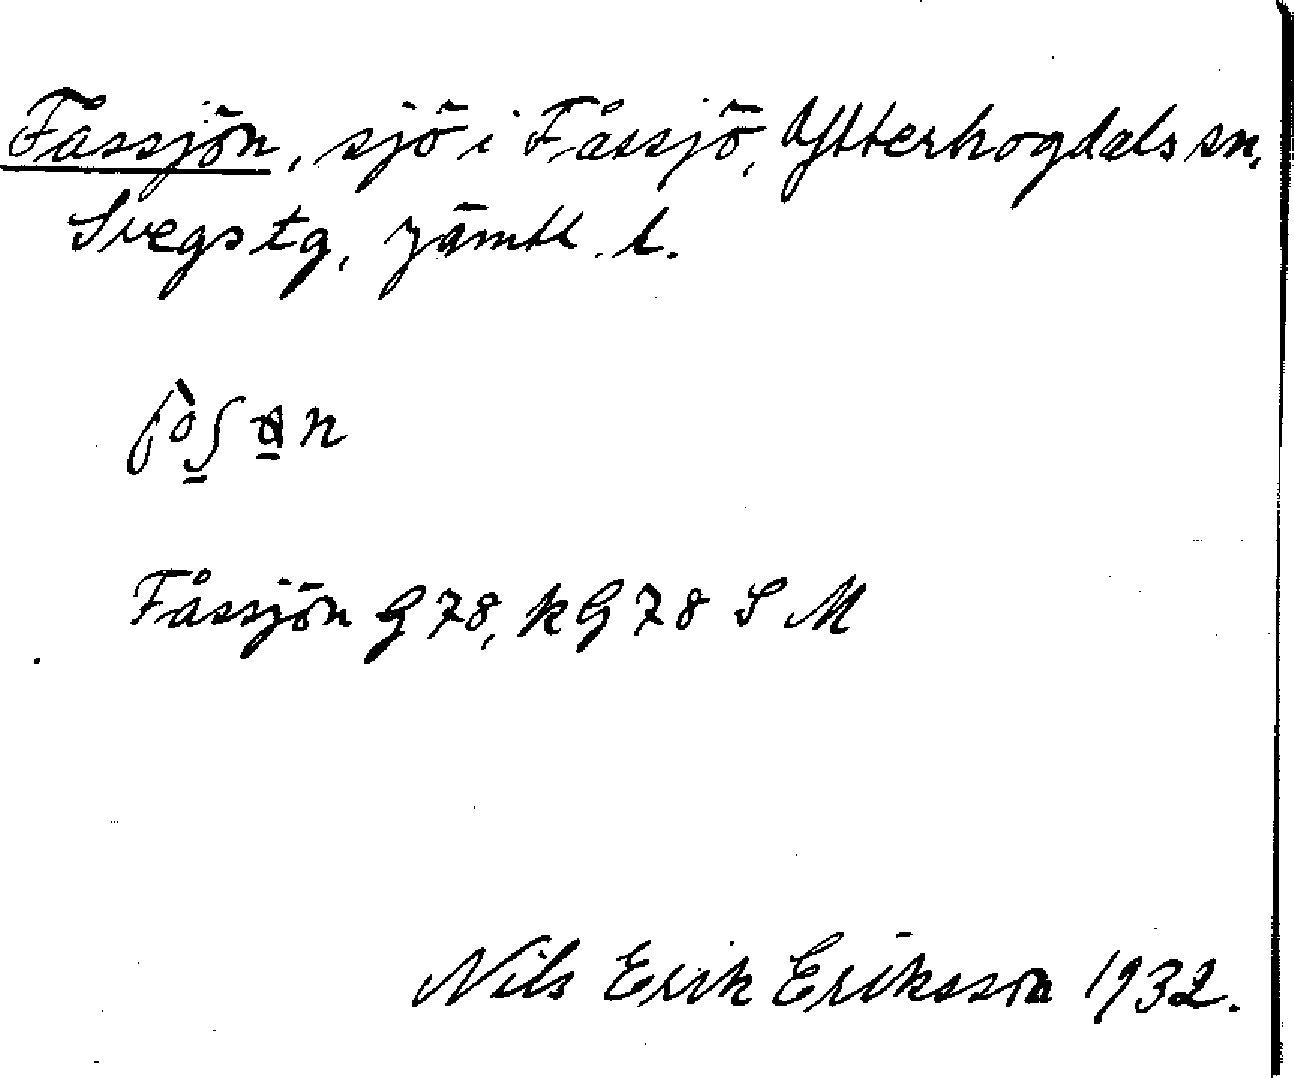 Fassjön, sjö i Fåssjö, Ytterhogdals sn,
Svegs tg, Jämtl. l.
Fåssjön G 78, kG 78 S M
Nils Erik Eriksson 1932.